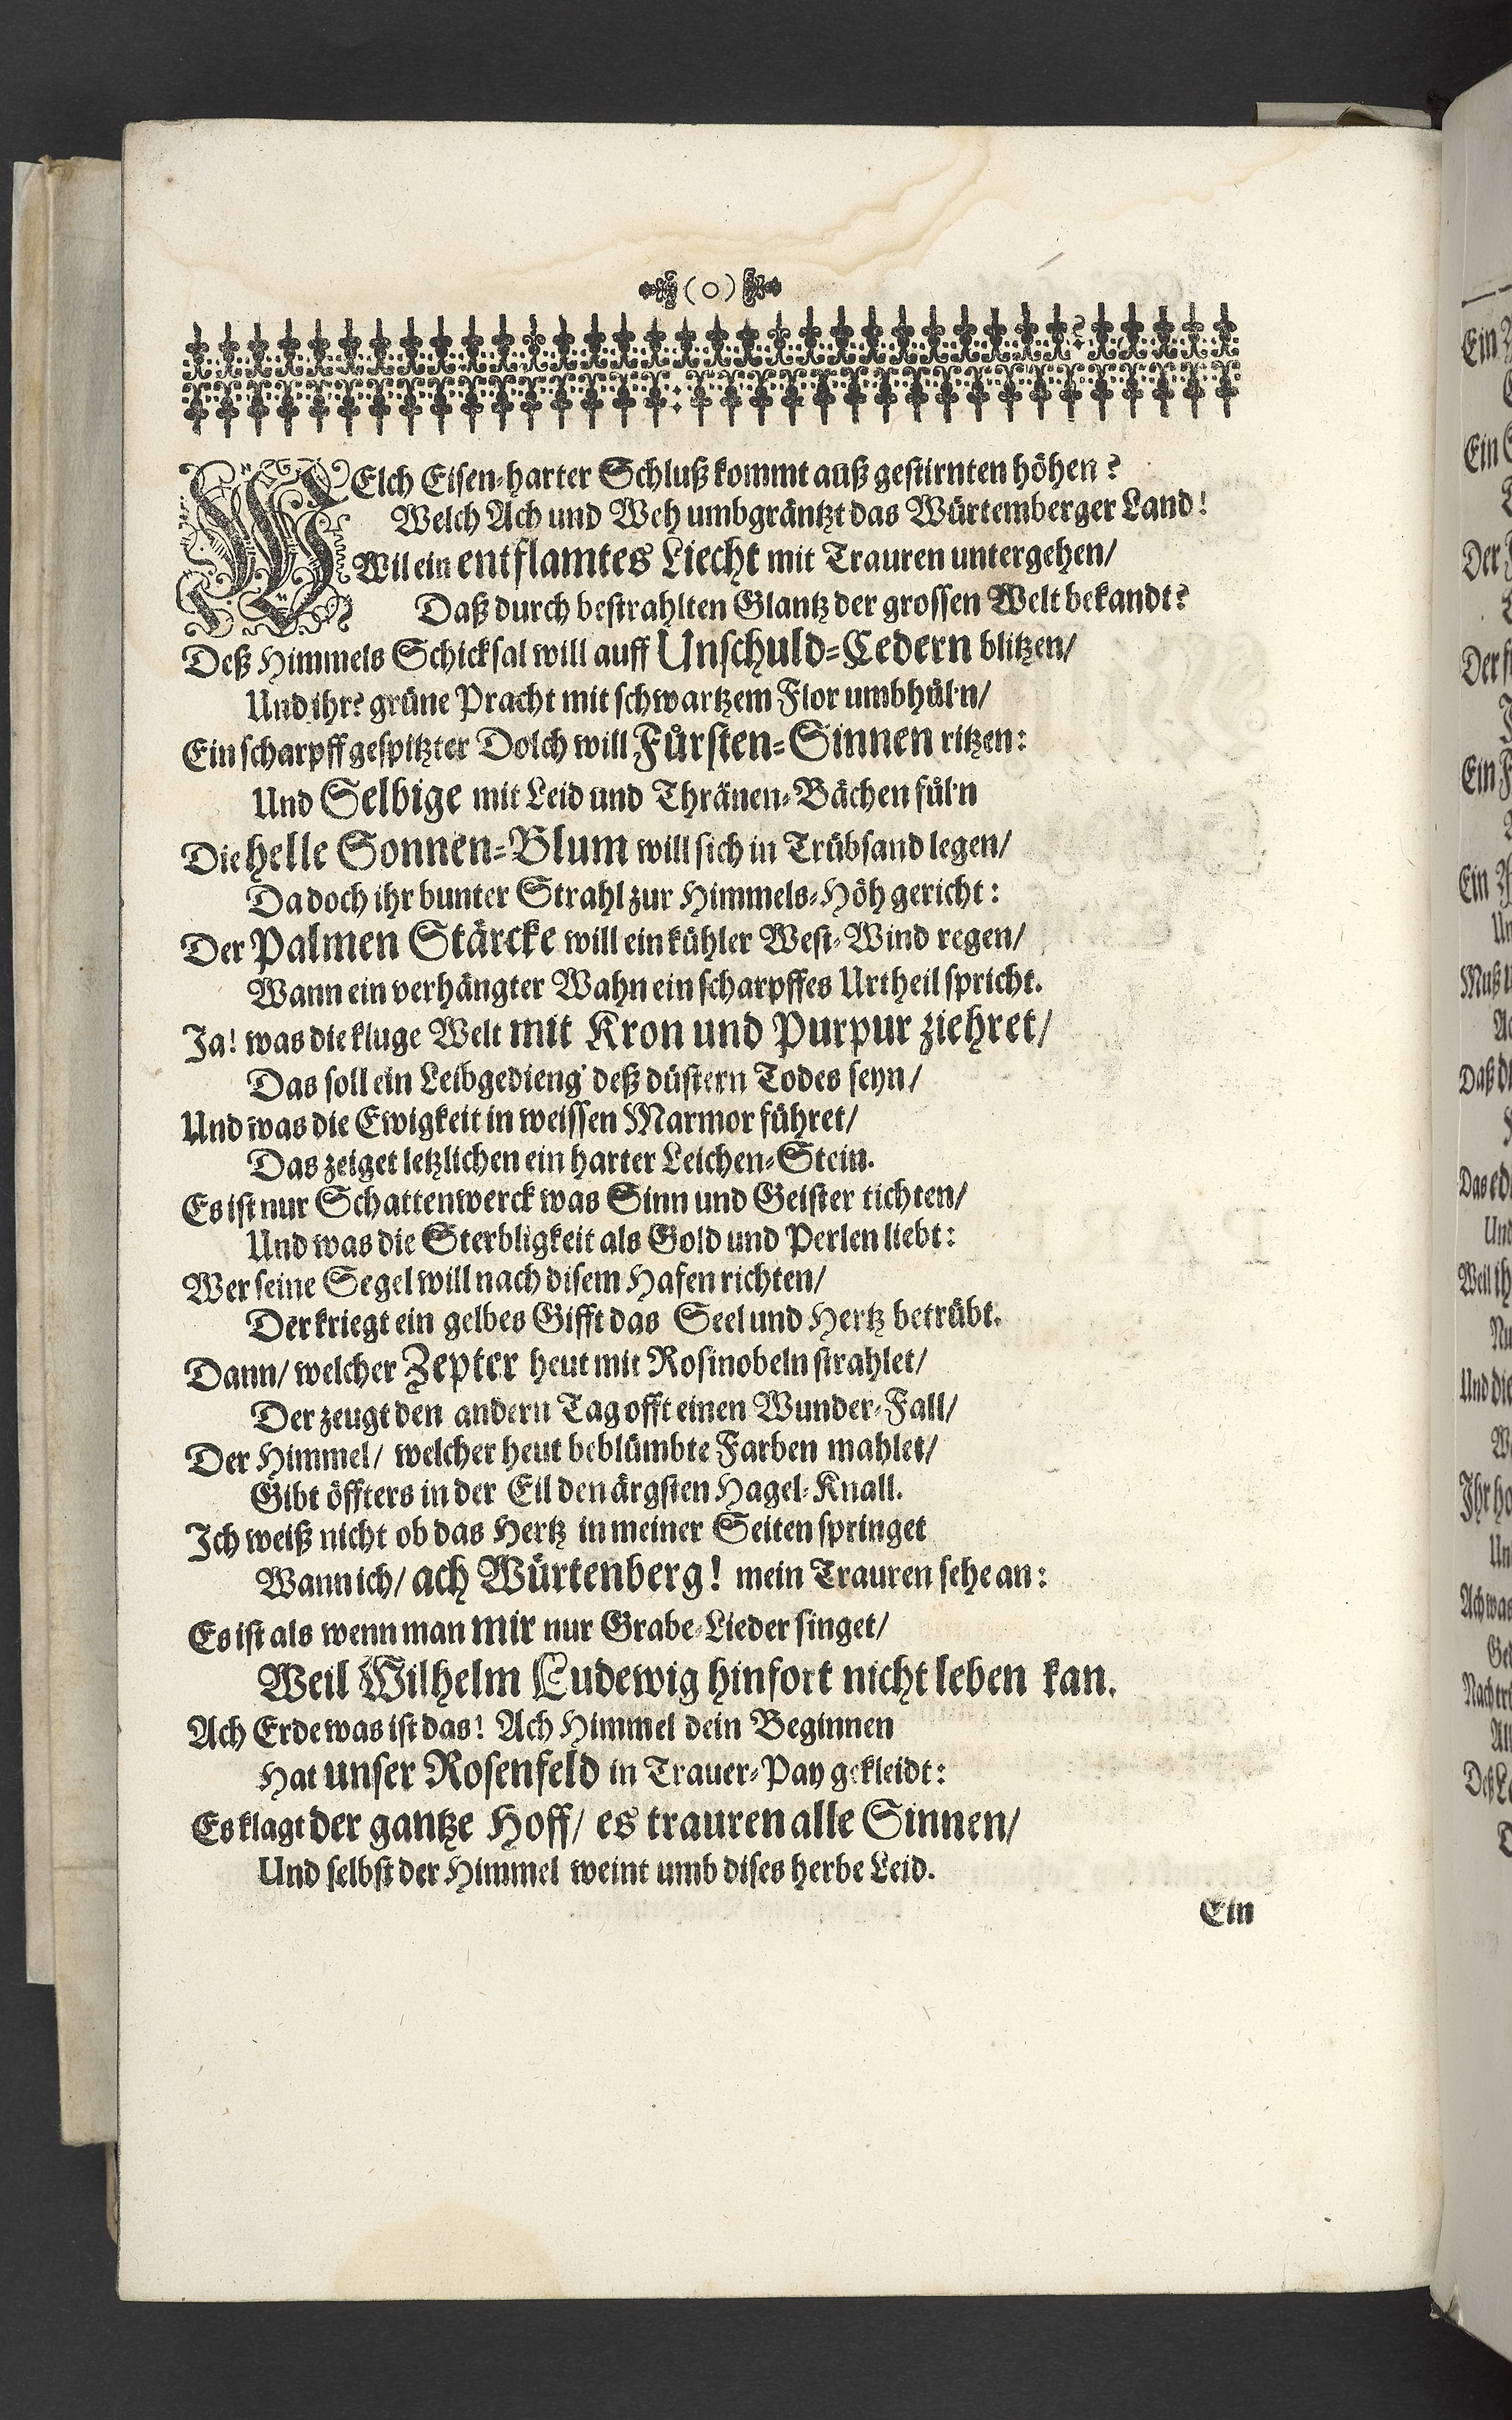 (o)
WElch Eisen-harter Schluß kommt auß gestirnten höhen?
Welch Ach und Weh umbgräntzt das Würtemberger Land!
Wil ein entflamtes Liecht mit Trauren untergehen/
Daß durch bestrahlten Glantz der grossen Welt bekandt?
Deß Himmels Schicksal will auff Unschuld-Cedern blitzen/
Und ihre grüne Pracht mit schwartzem Flor umbhül'n/
Ein scharpff gespitzter Dolch will Fürsten-Sinnen ritzen:
Und Selbige mit Leid und Thränen-Bächen fül'n
Die helle Sonnen-Blum will sich in Trübsand legen/
Da doch ihr bunter Strahl zur Himmels-Höh gericht:
Der Palmen Stärcke will ein kühler West-Wind regen/
Wann ein verhängter Wahn ein scharpffes Urtheil spricht.
Ja! was die kluge Welt mit Kron und Purpur ziehret/
Das soll ein Leibgedieng' deß düstern Todes seyn/
Und was die Ewigkeit in weissen Marmor führet/
Das zeiget letzlichen ein harter Leichen-Stein.
Es ist nur Schattenwerck was Sinn und Geister tichten/
Und was die Sterbligkeit als Gold und Perlen liebt:
Wer seine Segel will nach disem Hafen richten/
Der kriegt ein gelbes Gifft das Seel und Hertz betrübt.
Dann/ welcher Zepter heut mit Rosinobeln strahlet/
Der zeugt den andern Tag offt einen Wunder-Fall/
Der Himmel/ welcher heut beblümbte Farben mahlet/
Gibt öffters in der Eil den ärgsten Hagel-Knall.
Ich weiß nicht ob das Hertz in meiner Seiten springet
Wann ich/ ach Würtenberg! mein Trauren sehe an:
Es ist als wenn man mir nur Grabe-Lieder singet/
Weil Wilhelm Ludewig hinfort nicht leben kan.
Ach Erde was ist das! Ach Himmel dein Beginnen
Hat unser Rosenfeld in Trauer-Pay gekleidt:
Es klagt der gantze Hoff/ es trauren alle Sinnen/
Und selbst der Himmel weint umb dises herbe Leid.
Ein